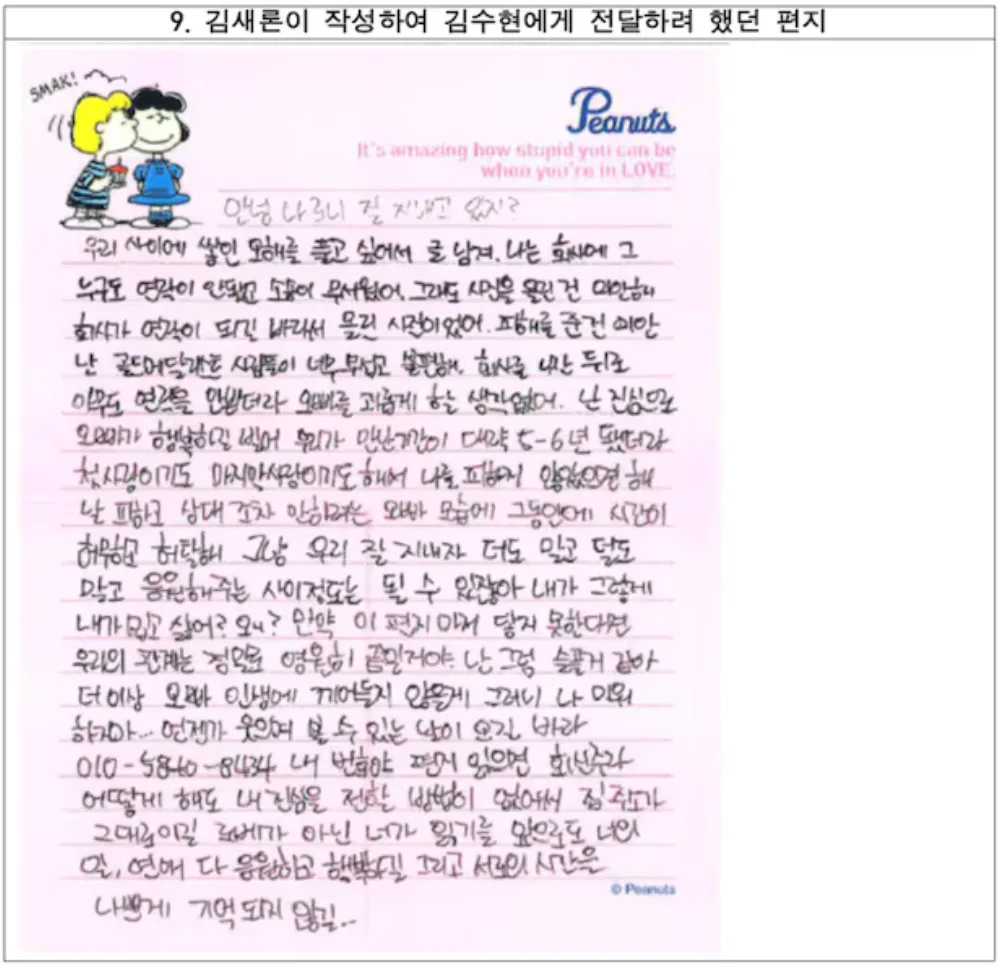 9. 김새론이 작성하여 김수현에게 전달하려 했던 편지
SMAK!
Peanuts
It's amazing how stupid you can be
when you're in LOVE.
안녕 나르니 잘 지내고 있지?
우리 사이에 쌓인 오해를 풀고 싶어서 글 남겨. 나는 회사에 그
누구도 연락이 안됐고 소송이 무서웠어. 그래도 사진을 올린 건 미안해
회사가 연락이 되길 바라서 올린 사진이었어. 피해를 준건 미안
난 골드메달리스트 사람들이 너무 무섭고 불편해. 회사를 나간 뒤로
아무도 연락을 안받더라 오빠를 괴롭게 하는 생각없어. 난 진심으로
오빠가 행복하길 빌어 우리가 만난기간이 대략 5-6년 됐더라
첫사랑이기도 마지막사랑이기도 해서 나를 피하지 않았으면 해
날 피하고 상대 조차 안하려는 오빠 모습에 그동안에 시간이
허무하고 허탈해 그냥 우리 잘 지내자 더도 말고 덜도
말고 응원해주는 사이정도는 될 수 있잖아 내가 그렇게
내가 밉고 싫어? 왜? 만약 이 편지 마저 닿지 못한다면
우리의 관계는 정말로 영원히 끝일거야. 난 그럼 슬플거 같아
더 이상 오빠 인생에 끼어들지 않을게 그러니 나 미워
하지마... 언젠가 웃으며 볼 수 있는 날이 오길 바라
010-5840-8434 내 번호야 편지 읽으면 회신주라
어떻게 해도 내 진심을 전할 방법이 없어서 집주소가
그대로이길 로베가 아닌 너가 읽기를 앞으로도 너의
일, 연애 다 응원하고 행복하길 그리고 서로의 시간을
© Peanuts
나쁘게 기억되지 않길...